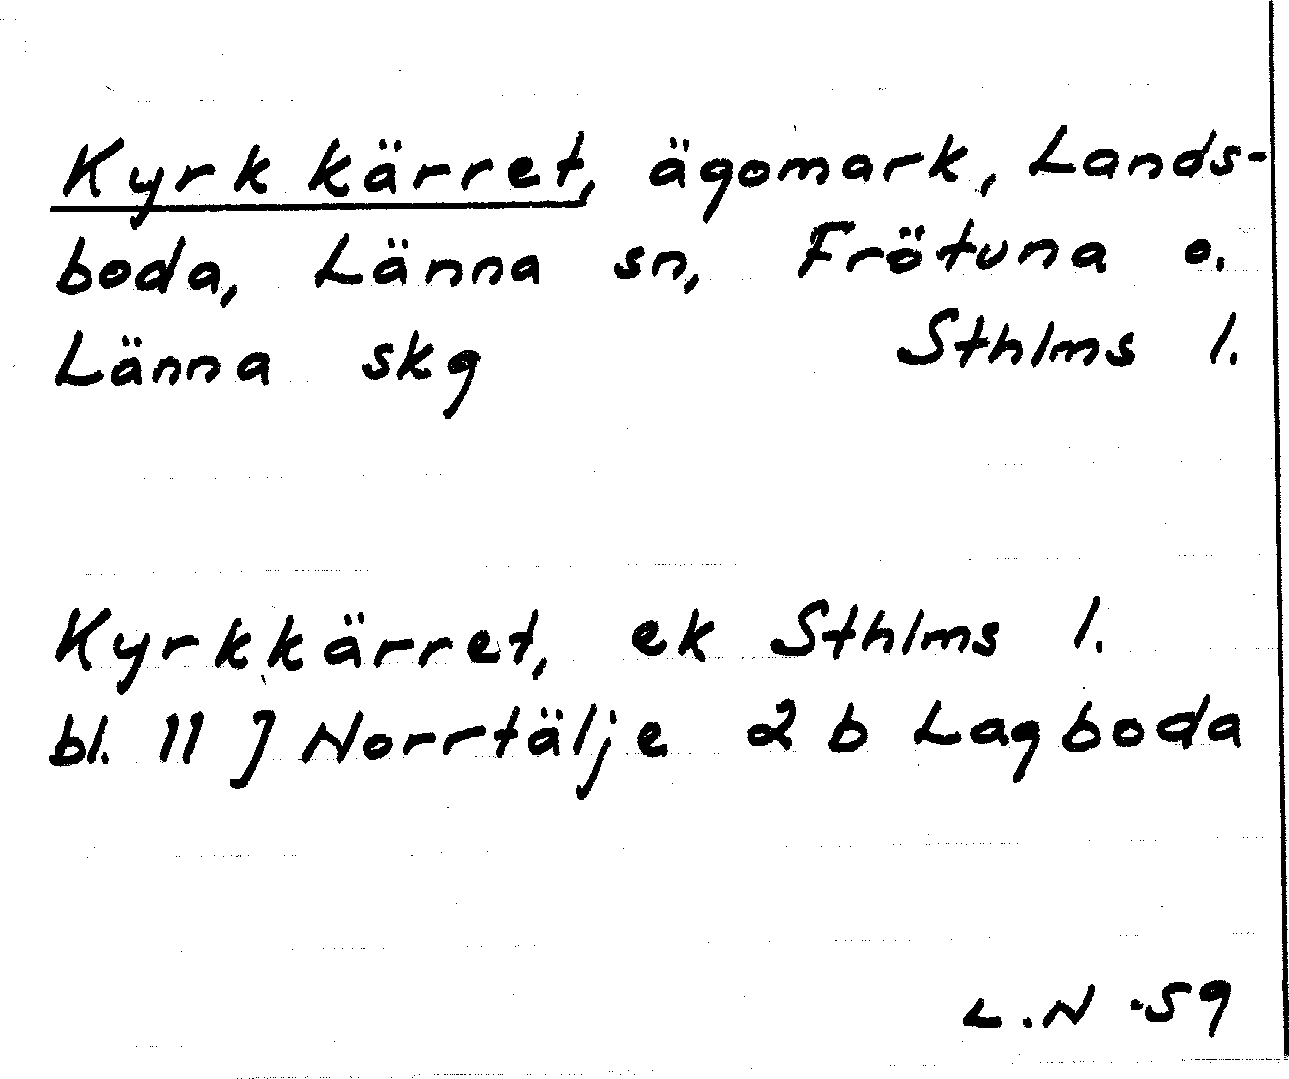 Kyrkkärret, ägomark, Lands-
boda, Länna sn, Frötuna o.
Länna skg Sthlms l.
Kyrkkärret, ek Sthlms l.
bl. 11 J Norrtälje 2 b Lagboda
L.N -59